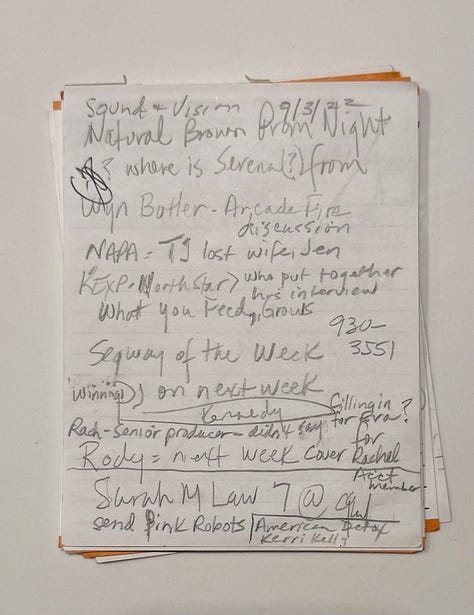 Sound & Vision 9/3/22
Natural Brown Prom Night
? where is Serena(?) from
Wyn Butler - Arcade Fire
discussion
NAPA = TJ lost wife, Jen
KEXP - North Star > who put together
his interview
What you Feed, Grows
930-
3551
Segway of the Week
"Winning" on next week
Kennedy
filling in
for Eva?
Rach - Senior producer - didn't say
for
Rody = next week cover Rachel
Acct
member
Sarah M Law 7 @
send Pink Robots
American Detox
Kerri Kelly